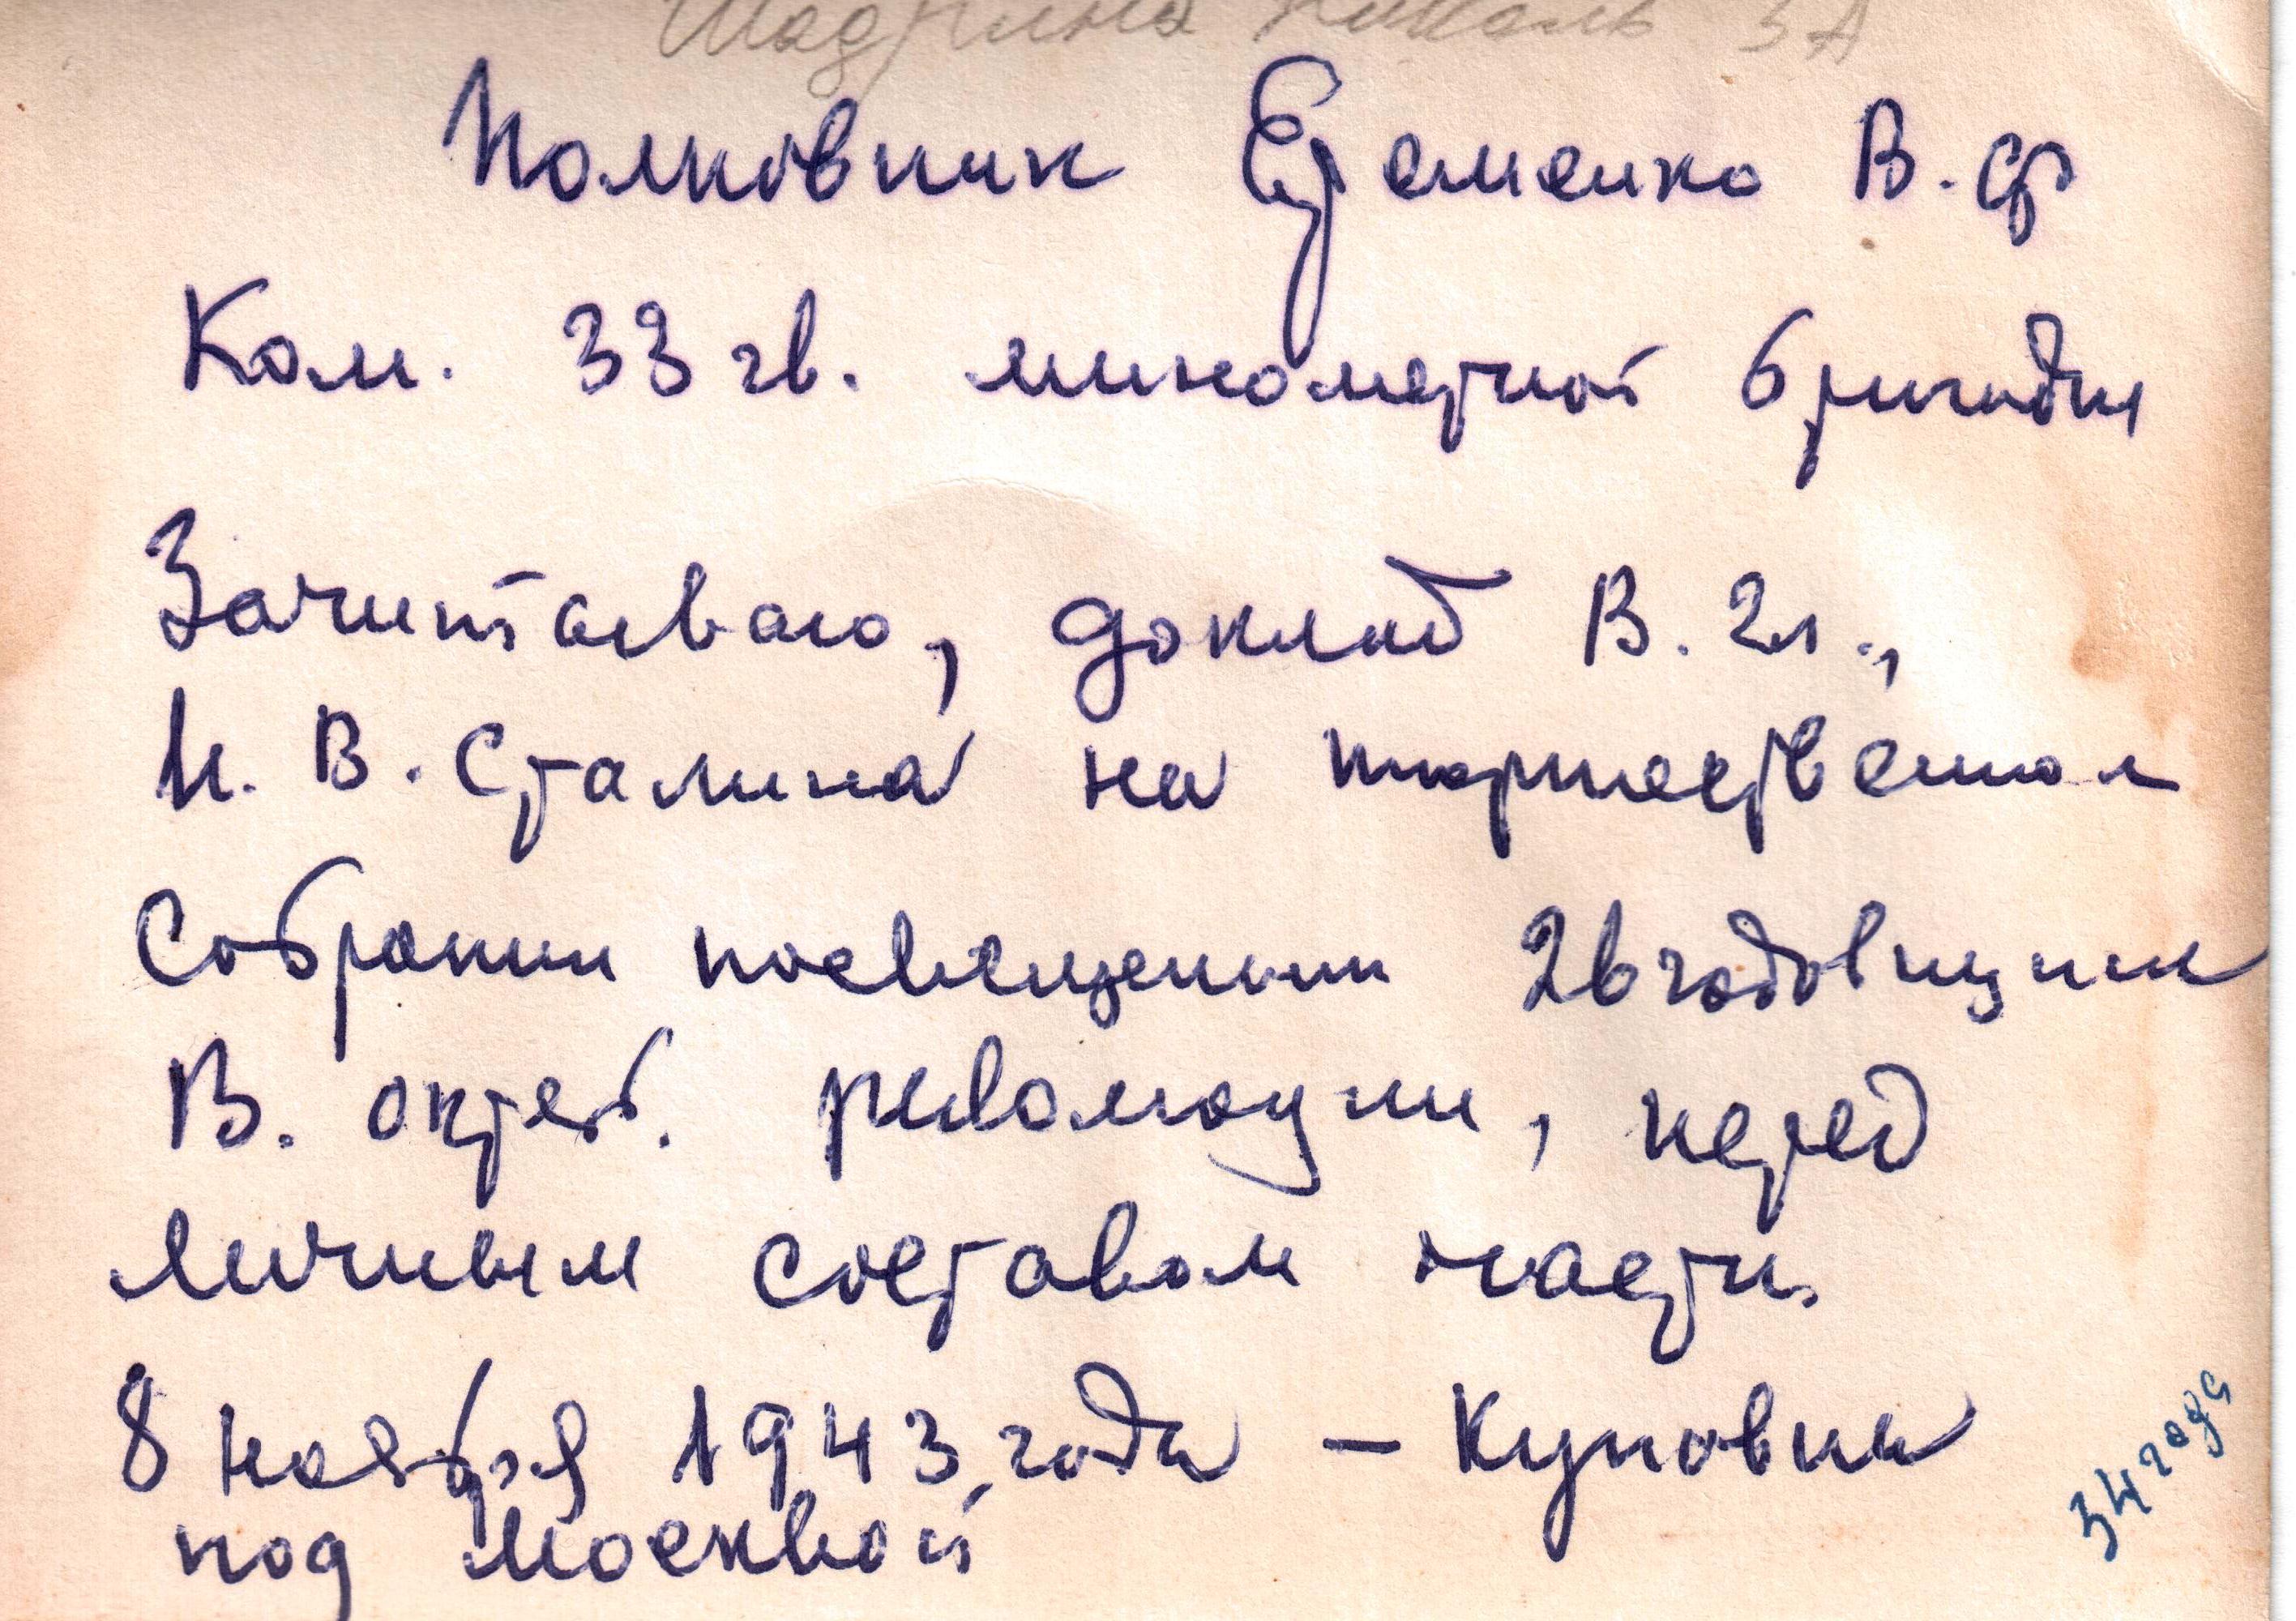 Шадрина Николь 3А
Полковник Еременко В. Ф
Ком. 33 гв. минометной бригады
Зачитываю, доклад В. Гл.,
И. В. Сталина на торжественом
Собрании посвещеном 26 годовщине
В. октяб. революции, перед
личным составом части.
8 ноября 1943 года – Купавна
под Москвой
34 года